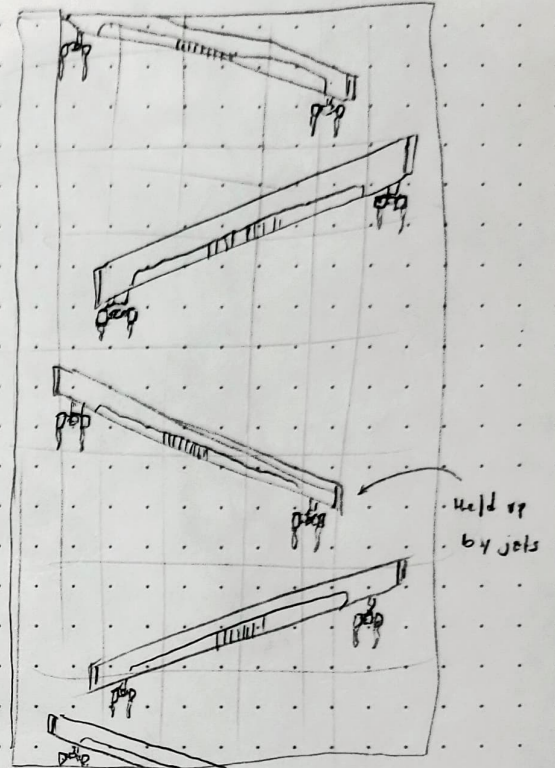 Held up
by jets